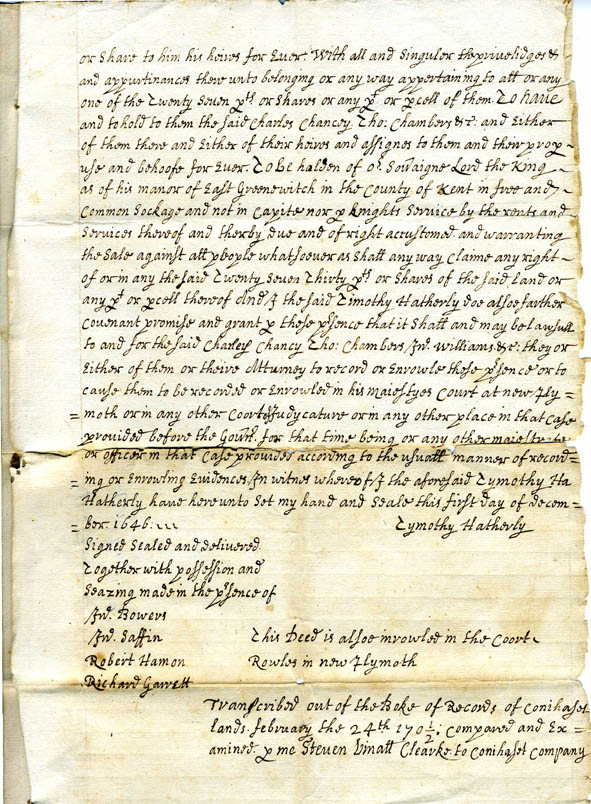 or Share to him his heires for Ever. With all and Singuler the priveledges &
and appurtinances there unto belonging or any way appertaining to all or any
one of the Twenty Seven pts or Shares or any pt or pcell of them To have
and to hold to them the said Charles Chancey Tho: Chambers &c: and Either
of them there and Either of their heires and assignes to them and their prop
use and behoofe for Ever. To be halden of or Soviaigne Lord the King
as of his manor of East Greenewitch in the County of Kent in free and
Common Sockage and not in Capite nor p knights Service by the rents and
Services thereof and therby due and of right accustomed and warranting
the Sale against all people whatsoever as Shall any way Claime any right
of or in any the said Twenty Seven Thirty pts or Shares of the said Land or
any pt or pcell thereof And I the said Timothy Hatherly doe alsoe farther
Covenant promise and grant p these psence that it Shall and may be Lawfull
to and for the said Charles Chancy Tho: Chambers Jno. Williams &c: they or
Either of them or theire Atturney to record or Enrowle these psence or to
cause them to be recorded or Enrowled in his Maiestyes Court at new Ply=
=moth or in any other Coort of Judycature or in any other place in that Case
provided before the Govrr. for that time being or any other maiestrate
or officer in that Case provided according to the usuall manner of record=
=ing or Enrowling Evidences. In witnes whereof I the aforesaid Tymothy Ha
Hatherly have here unto Set my hand and Seale this first day of decem=
=ber: 1646:
Tymothy Hatherly
Signed Sealed and delivered
Together with possession and
Seazing made in the psence of
Jno. Bowers
Jno. Saffin
This Deed is alsoe inrowled in the Court
Robert Hamon
Rowles in new Plymoth
Richard Garrett
Transcribed out of the Boke of Records of Conihaset
lands. february the 24th 170 1/2: Compared and Ex=
amined. p me Steven Vinall Clearke to Conihaset Company